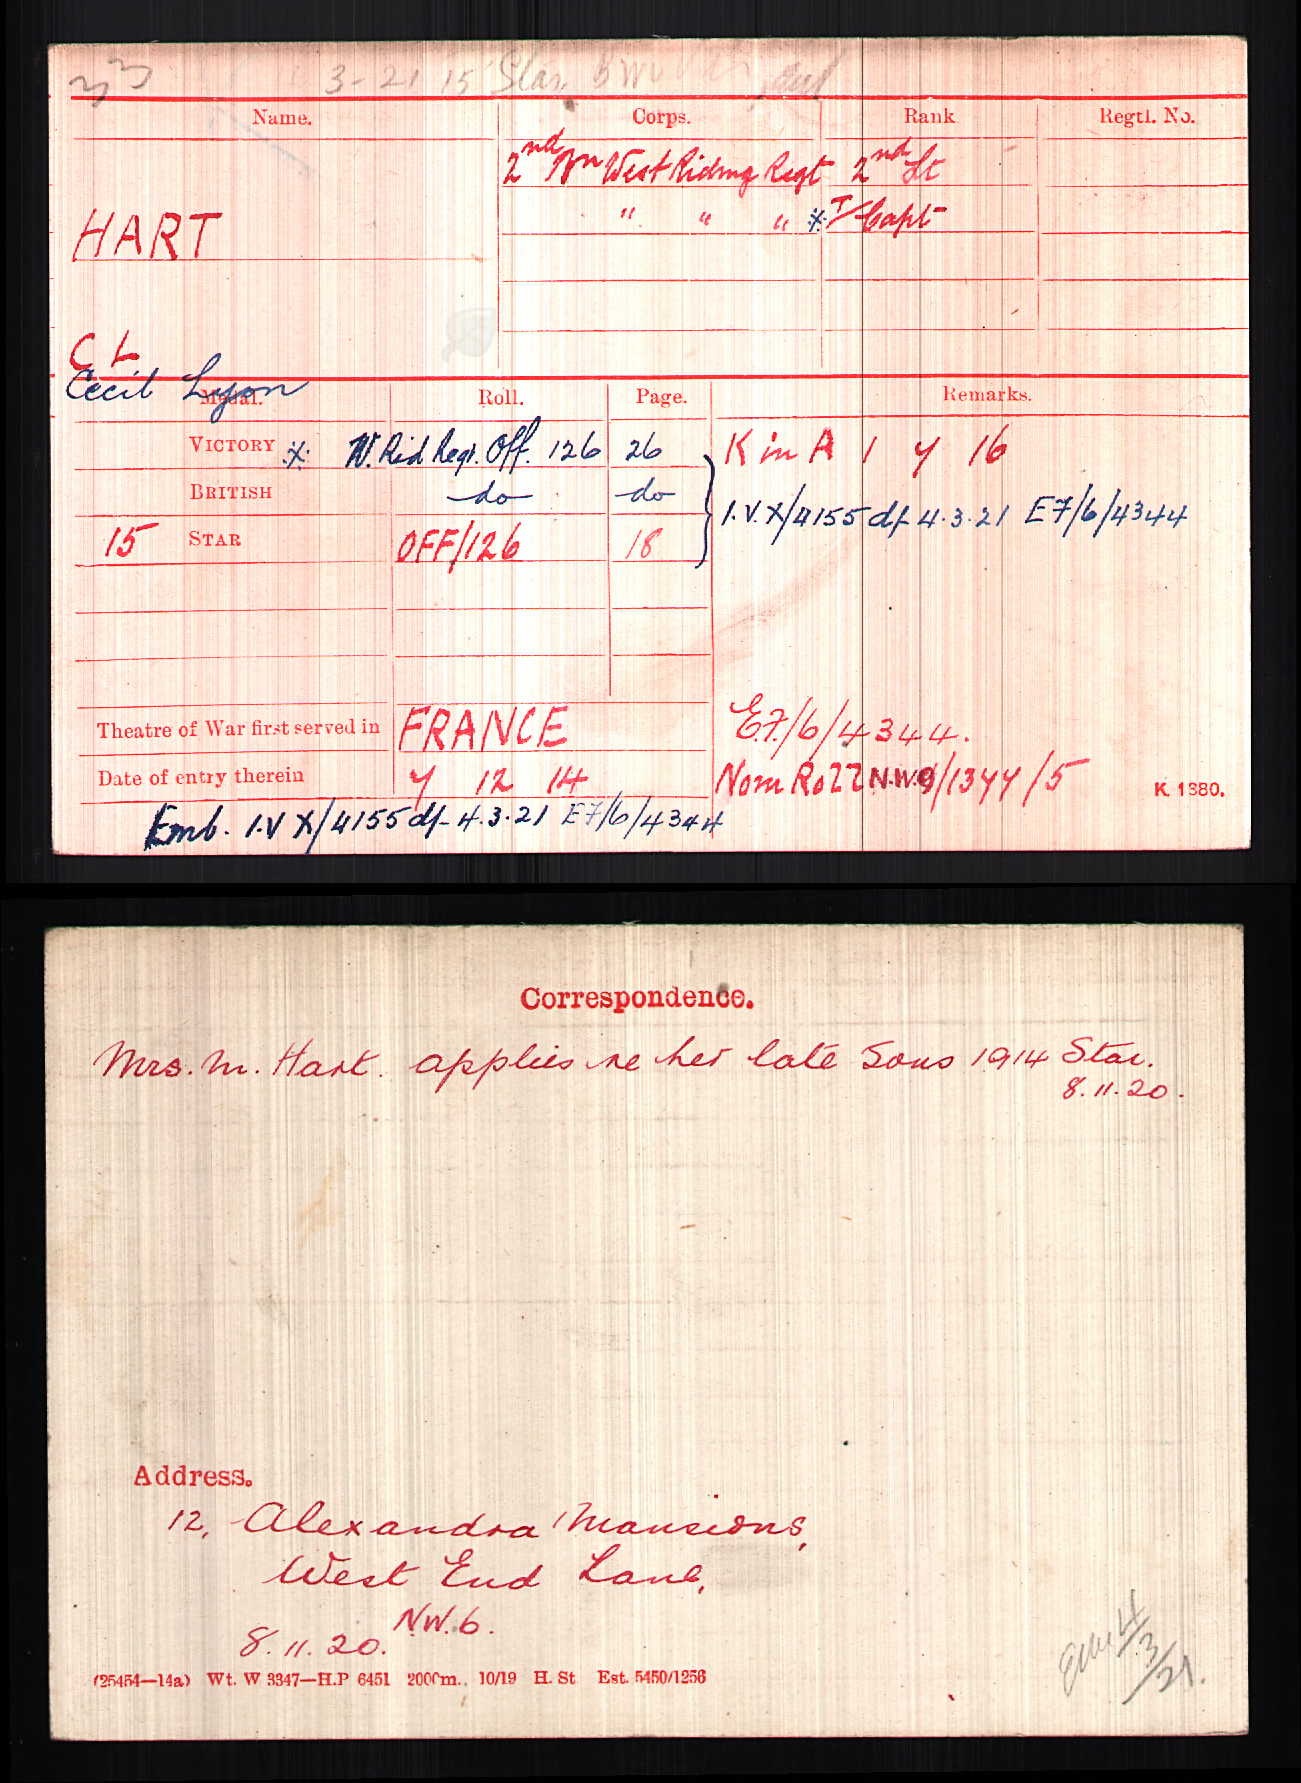 33 3-21 15 Star
Name. Corps. Rank Regtl. No.
2nd Bn West Riding Regt 2nd Lt
HART " " " * T/Capt
C L
Cecil Lyon
Medal. Roll. Page. Remarks.
VICTORY * W. Rid Regt. Off. 126 26 K in A 1 7 16
BRITISH do do I.V. X/4155 df 4.3.21 E7/6/4344
15 STAR OFF/126 18
Theatre of War first served in FRANCE E.7./6/4344.
Date of entry therein 7 12 14 Nom Roll N.W.9/1377/5 K. 1380.
Emb. I.V X/4155 df 4.3.21 E7/6/4344
Correspondence.
Mrs. M. Hart. applies re her late Sons 1914 Star.
8.11.20.
Address.
12, Alexandra Mansions,
West End Lane,
N.W.6.
8.11.20.
4/3/21.
(25454—14a) Wt. W 3347—H.P 6451 2000m.. 10/19 H. St Est. 5450/1256